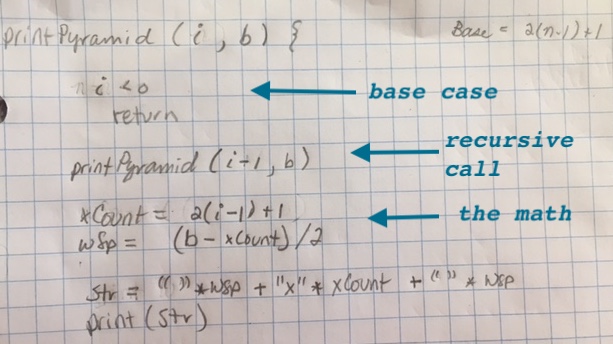 printPyramid (i, b) {
Base = 2(n-1)+1
i <0
base case
return
recursive
call
printPyramid (i-1, b)
xCount = 2(i-1)+1
the math
wSp = (b - xCount)/2
Str = " " * wSp + "x" * xCount + " " * wSp
print (Str)